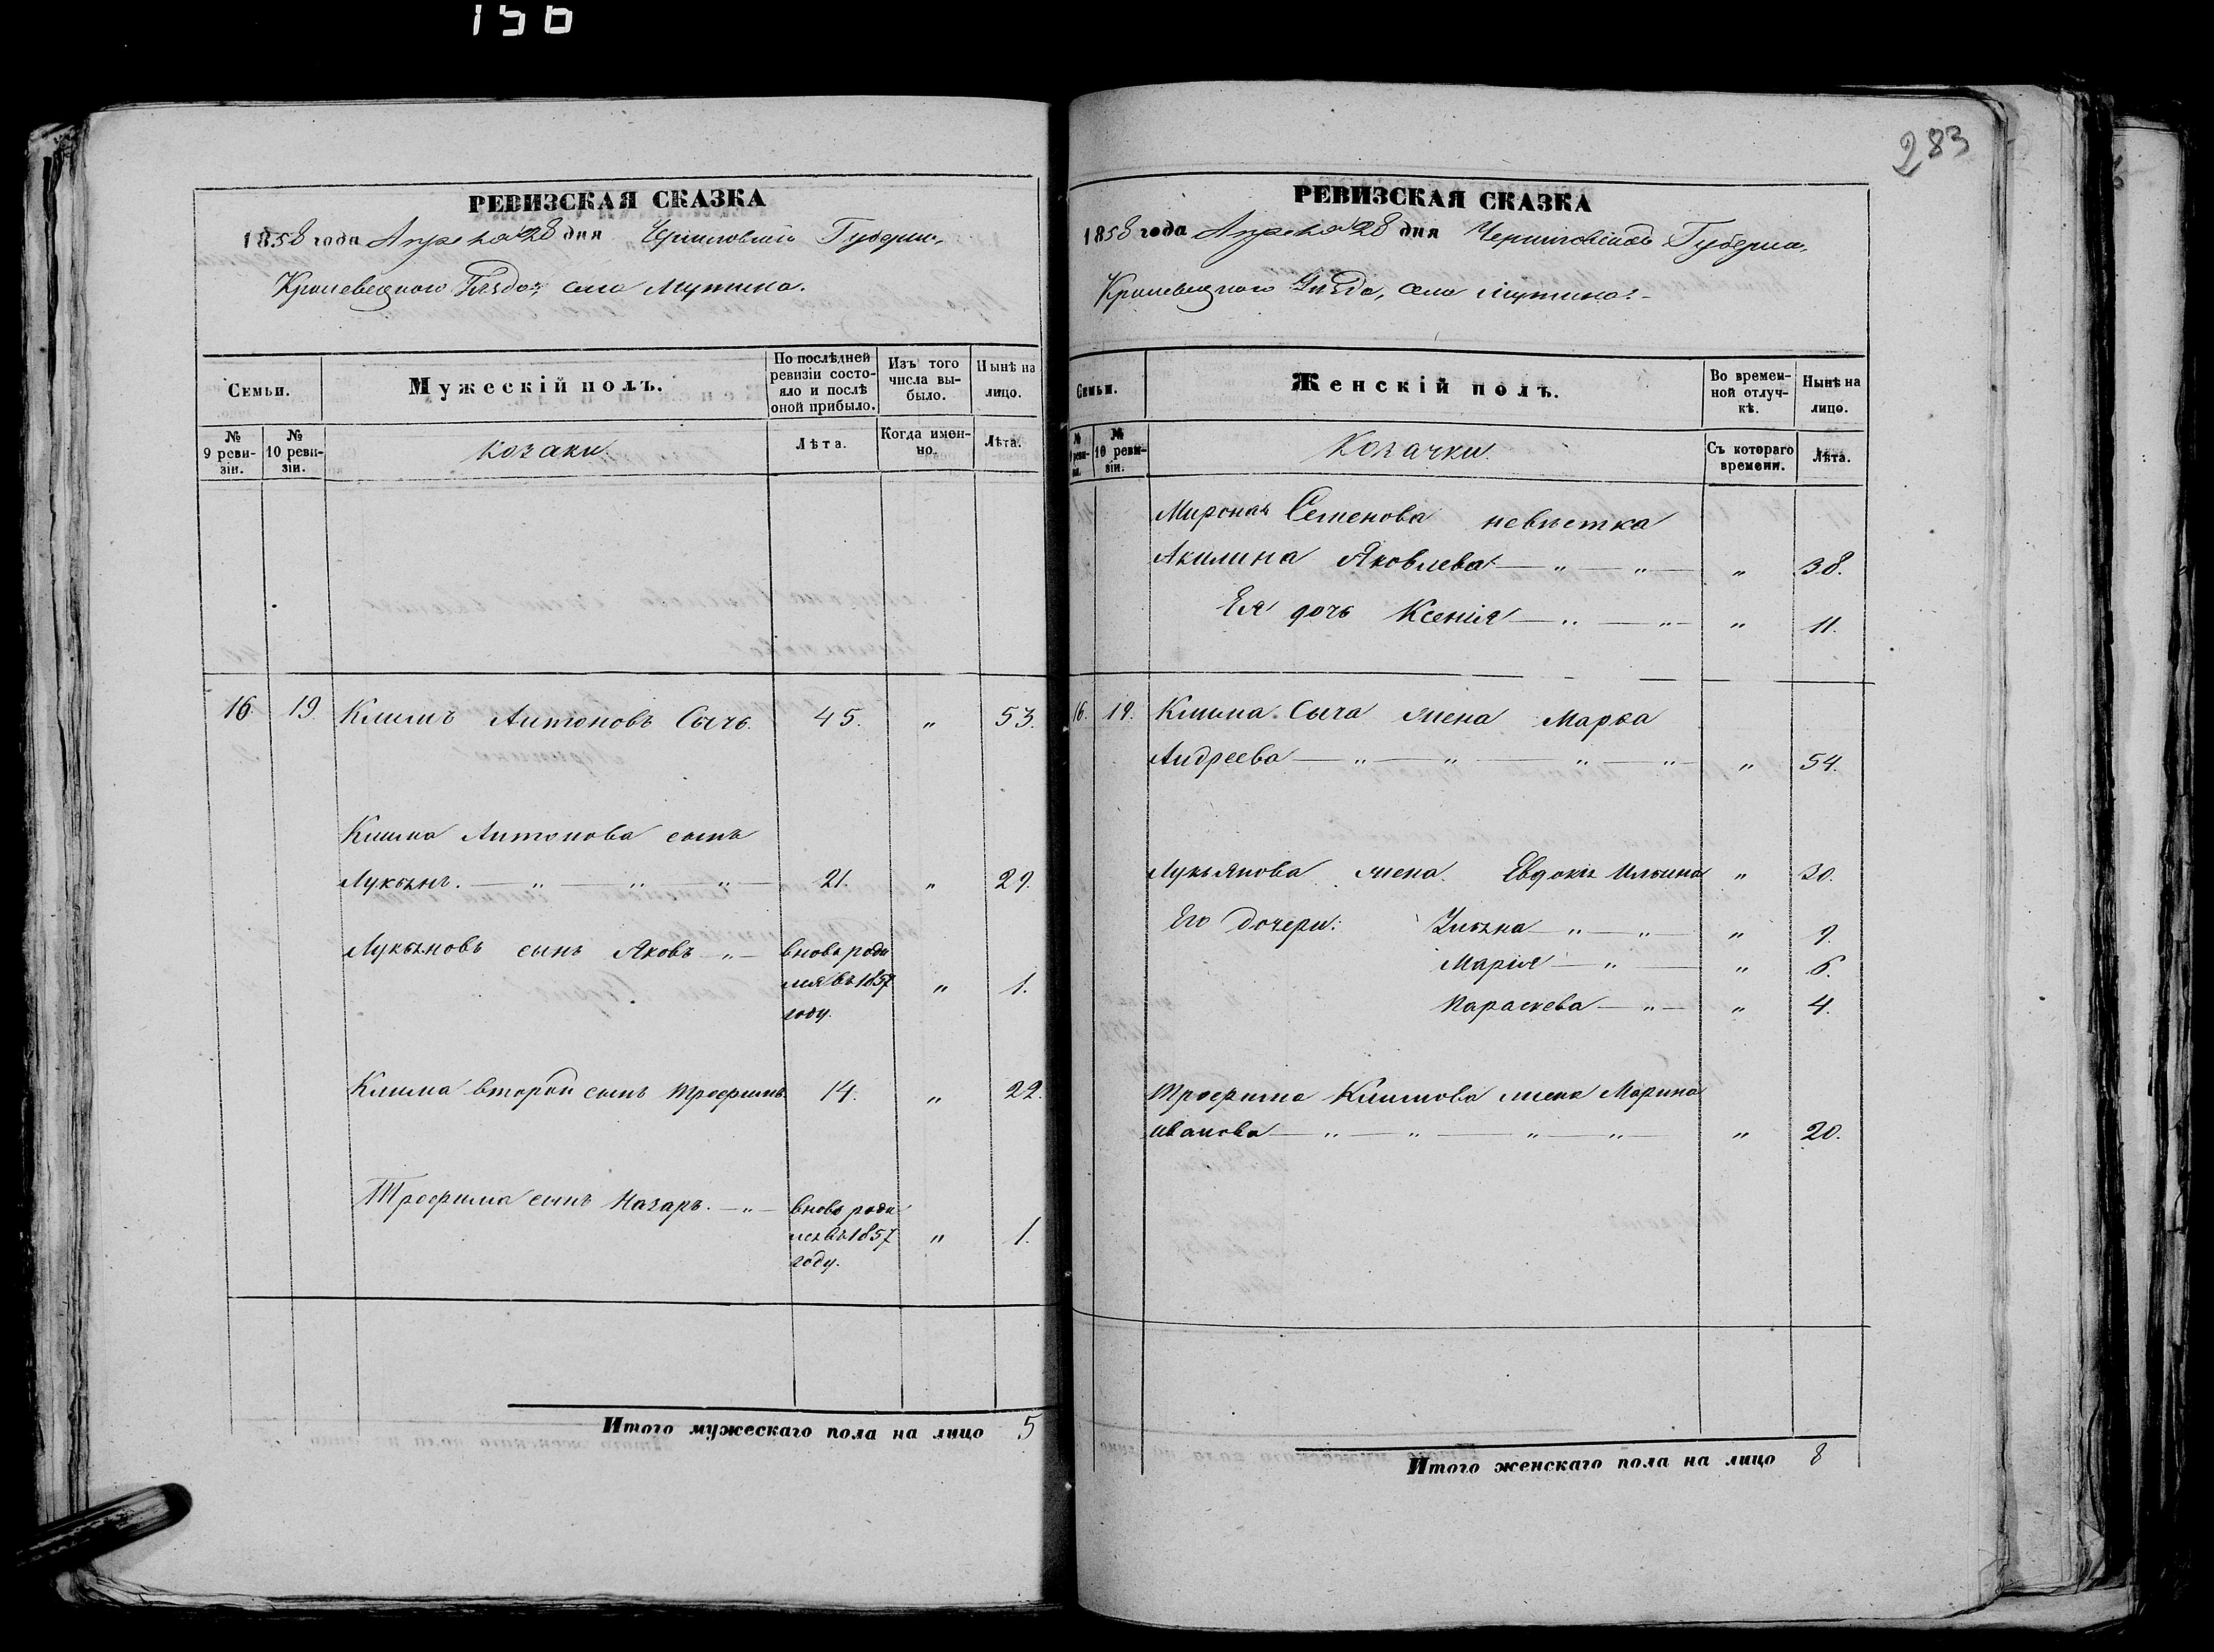 156
РЕВИЗСКАЯ СКАЗКА
1858 года Апреля 28 дня Черниговской Губерніи,
Кролевецкого Уѣзда, села Мутина.
Семьи.
Мужескій полъ.
По послѣдней ревизіи состояло и послѣ оной прибыло.
Изъ того числа выбыло.
Нынѣ на лицо.
№ 9 ревизіи.
№ 10 ревизіи.
Козаки.
Лѣта.
Когда именно.
Лѣта.
16. 19 Климъ Антоновъ Сычъ. 45. „ 53.
Клима Антонова сынъ
Лукьянъ. — „ — „ — „ — 21. „ 29.
Лукьяновъ сынъ Яковъ — „ — вновь роди
лся въ 1857 „ 1.
году.
Клима второй сынъ Трофимъ. 14. „ 22.
Трофима сынъ Назаръ. — „ — вновь роди
лся въ 1857 „ 1.
году.
Итого мужескаго пола на лицо 5
283
РЕВИЗСКАЯ СКАЗКА
1858 года Апреля 28 дня Черниговской Губерніи,
Кролевецкого Уѣзда, села Мутина.
Семьи.
Женскій полъ.
Во временной отлучкѣ.
Нынѣ на лицо.
№ 9 ревизіи.
№ 10 ревизіи.
Козачки.
Съ котораго времени.
Лѣта.
Мирона Семенова невѣстка
Акилина Яковлева — „ — „ — „ 38.
Ея дочь Ксенія — „ — „ — „ 11.
16. 19. Клима Сыча жена Марѳа
Андреева — „ — „ — „ — „ — „ 54.
Лукьянова жена Евдокія Ильина „ 30.
Его дочери: Ульяна — „ — „ — „ 9.
Марія — „ — „ 6.
Параскева — „ — „ 4.
Трофима Климова жена Марина
Иванова — „ — „ — „ — „ — „ 20.
Итого женскаго пола на лицо 8